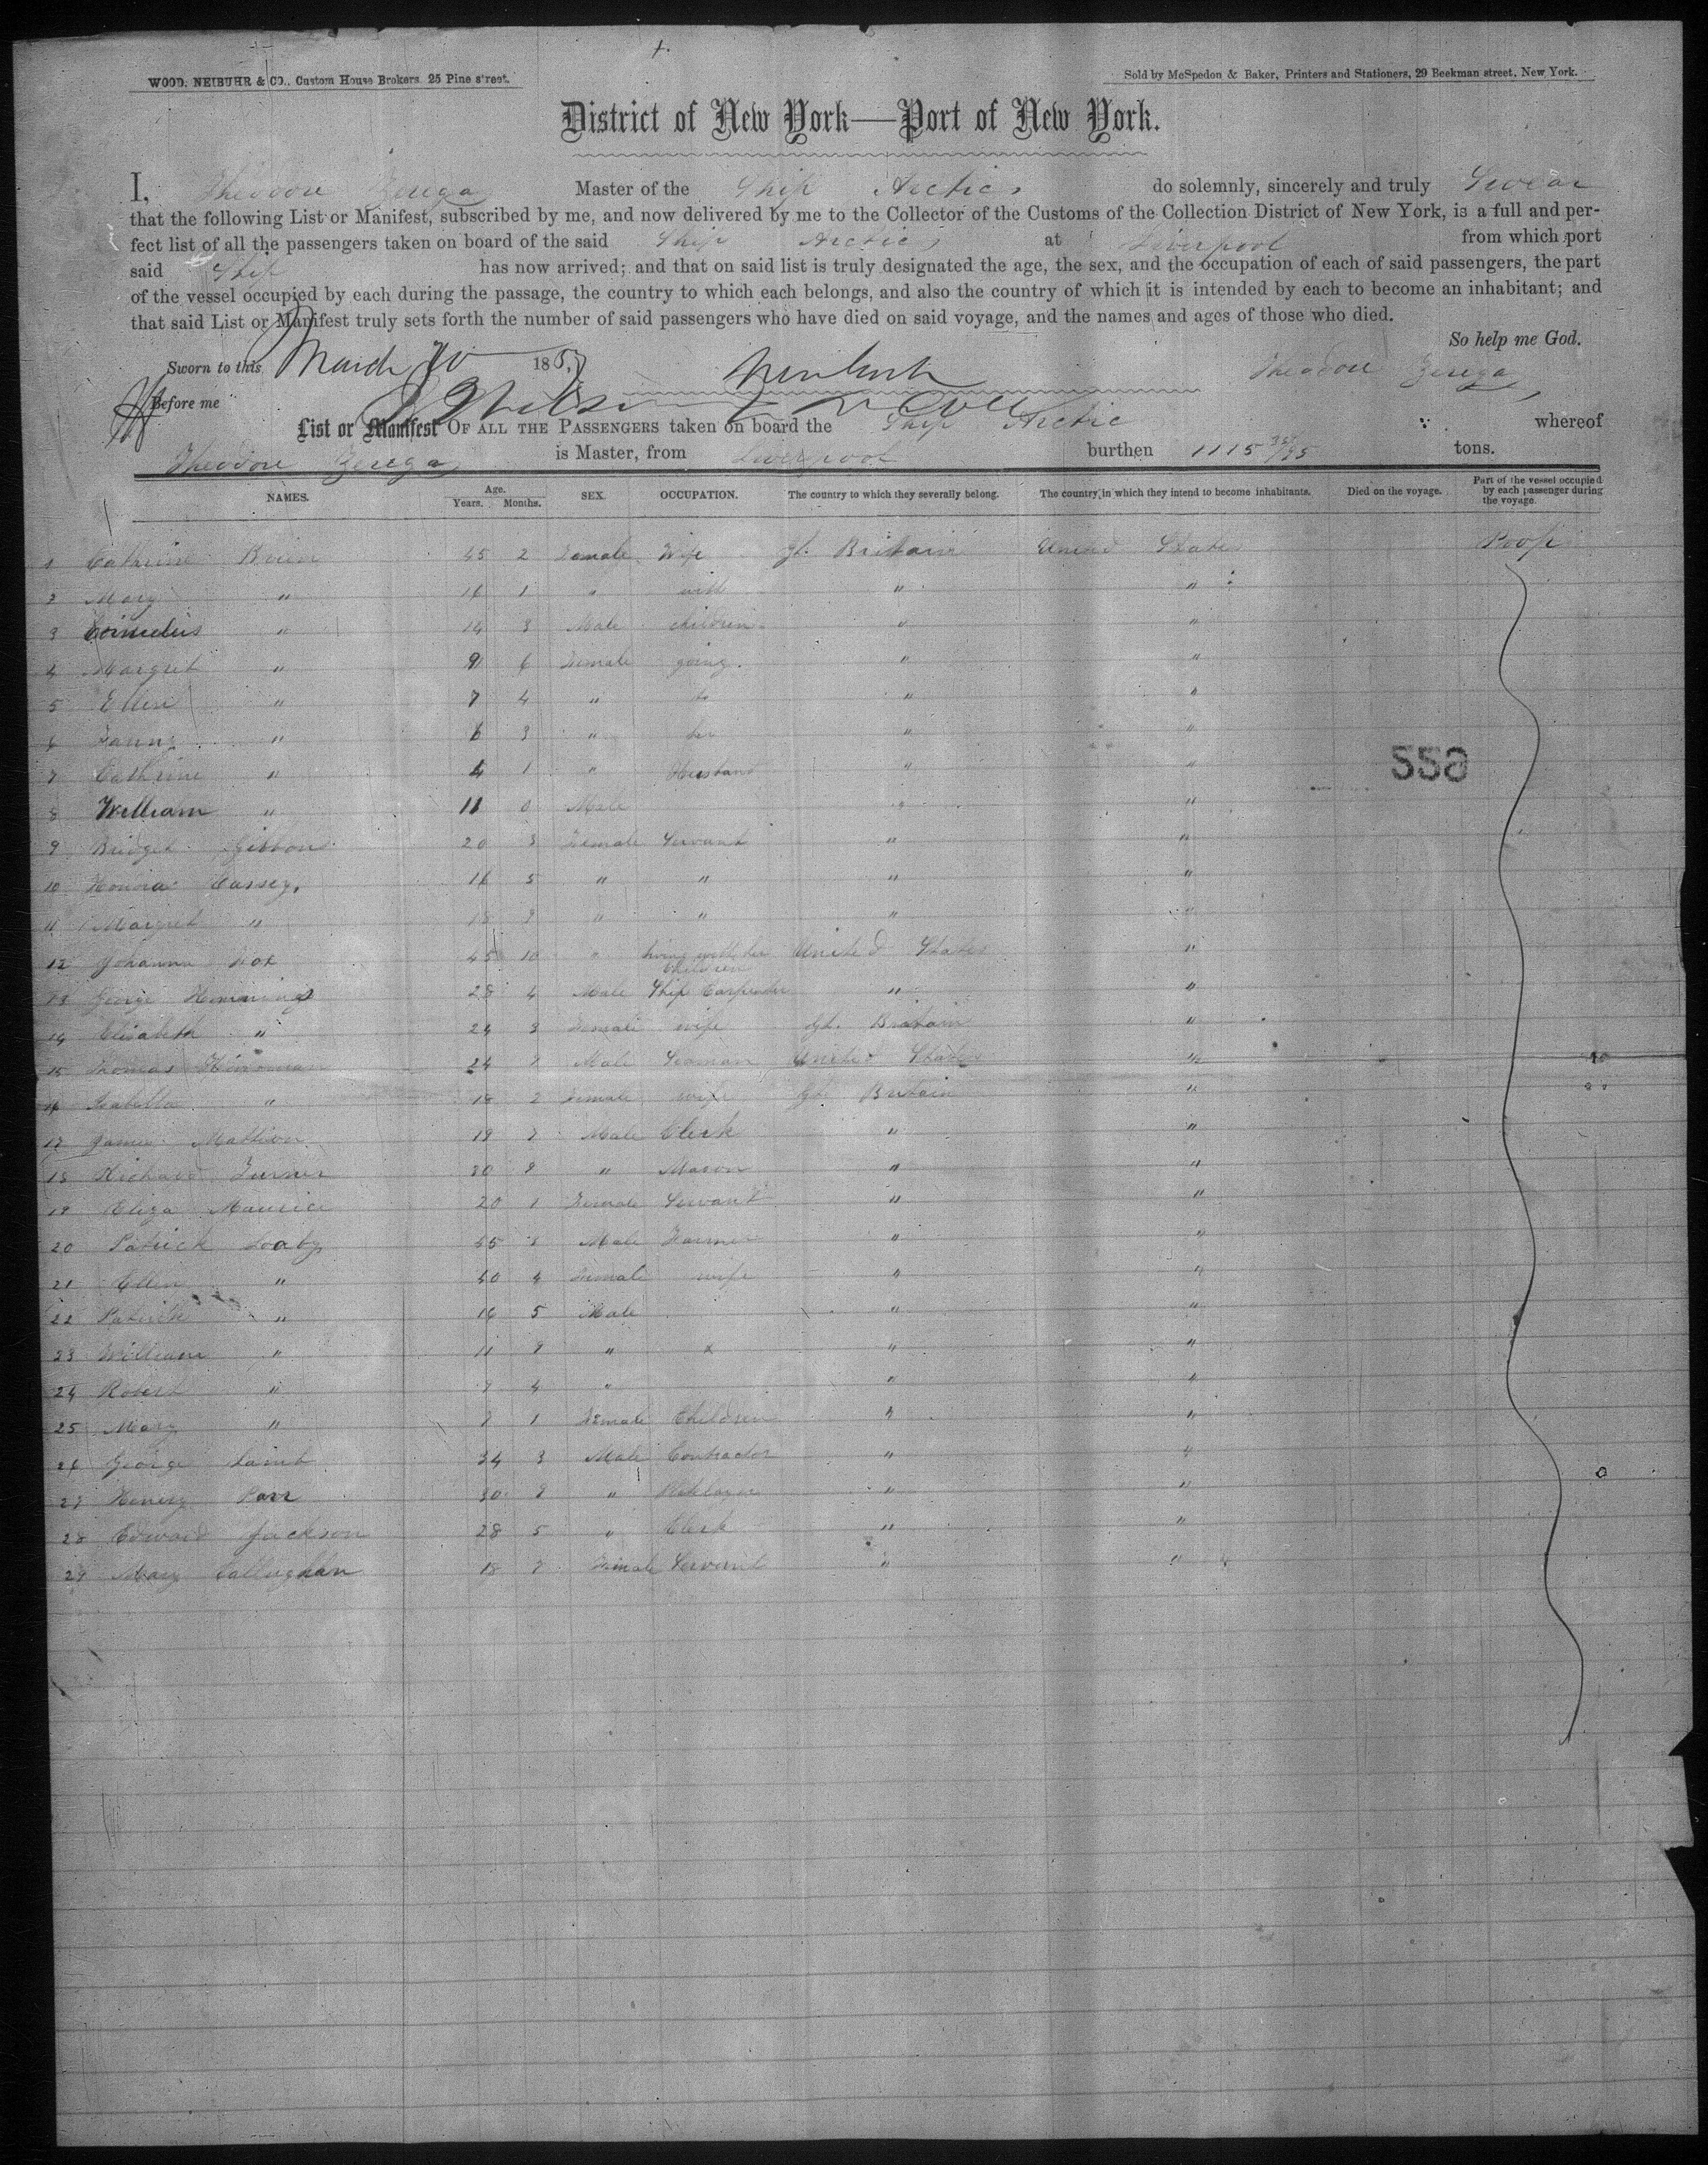 WOOD, NEIBUHR & CO., Custom House Brokers, 25 Pine street.
Sold by McSpedon & Baker, Printers and Stationers, 29 Beekman street, New York.
District of New York—Port of New York.
I, Theodore Zerega Master of the Ship Arctic do solemnly, sincerely and truly Swear
that the following List or Manifest, subscribed by me, and now delivered by me to the Collector of the Customs of the Collection District of New York, is a full and per-
fect list of all the passengers taken on board of the said Ship Arctic at Liverpool from which port
said Ship has now arrived; and that on said list is truly designated the age, the sex, and the occupation of each of said passengers, the part
of the vessel occupied by each during the passage, the country to which each belongs, and also the country of which it is intended by each to become an inhabitant; and
that said List or Manifest truly sets forth the number of said passengers who have died on said voyage, and the names and ages of those who died.
So help me God.
Sworn to this March 185 Theodore Zerega
Before me
List or Manifest OF ALL THE PASSENGERS taken on board the Ship Arctic whereof
Theodore Zerega is Master, from Liverpool burthen 1115 /95 tons.
NAMES. Age. Years. Months. SEX. OCCUPATION. The country to which they severally belong. The country in which they intend to become inhabitants. Died on the voyage. Part of the vessel occupied by each passenger during the voyage.
1 Cathrine Brien 45 2 Female Wife Gt. Britain United States Poop
2 Mary " 16 1 " with " "
3 Cornelius " 14 3 Male children " "
4 Margret " 9 6 Female going " "
5 Ellen " 7 4 " to " "
6 Fanny " 6 3 " her " "
7 Cathrine " 4 1 " Husband " "
8 William " 11 0 Male " "
9 Bridget Gibbons 20 3 Female Servant " "
10 Honora 16 5 " " " "
11 Margret " 18 " " " "
12 Johanna 45 10 " living with her Children United States "
13 George Hemmings 28 4 Male Ship Carpenter " "
14 Elisabeth " 24 3 Female wife Gt. Britain "
15 Thomas 24 Male Seaman United States "
16 Isabella " 18 2 Female wife Gt. Britain "
17 James 19 Male Clerk " "
18 Richard Turner 30 " Mason " "
19 Eliza Maurice 20 1 Female Servant " "
20 Patrick Male Farmer " "
21 Ellen " 40 4 Female wife " "
22 Patrick " 16 5 Male " "
23 William " 11 9 " x " "
24 Robert " 9 4 " " "
25 Mary " 1 Female Children " "
26 George Lamb 34 3 Male Contractor " "
27 Henery Parr 30 " " "
28 Edward Jackson 28 5 " Clerk " "
29 Mary Callaghan 18 Female Servant " "